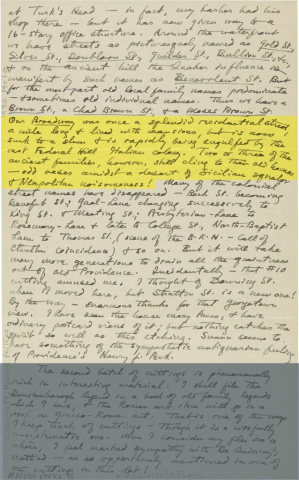 at Turk's Head — in fact, my barber had his
shop there — but it has now given way to a
16-story office structure. Around the waterfront
we have streets as picturesquely named as Gold St.,
Silver St., Doubloon St., Guilder St., Dollar St., &c.,
& on the ancient hill the Quaker influence is
manifest by such names as Benevolent St. But
for the most part old local family names predominate
— sometimes odd individual names. Thus we have a
Brown St., a Clad Brown St., & a Moses Brown St.
Our Broadway was once a splendid residential street,
a mile long & lined with mansions, but is now
such to a slum & is rapidly being engulfed by the
vast Federal Hill Italian colony. Two or three of the
ancient families, however, still cling to their old homes
— odd oases amidst a desert of Sicilian squalor
& Neapolitan noisomeness! Many of the colonial
street names have disappeared — Back St. becoming
Benefit St.; Gaol-Lane changing successively to
King St. & Meeting St.; Presbyterian-Lane to
Rosemary-Lane & later to College St., North-Baptist
Lane to Thomas St. (scene of the B.K.H. — Call of
Cthulhu coincidence) & so on. But it will take
many more generations to drain all the quaintness
out of old Providence. Incidentally — that #10
cutting amused me. I thought of Downing St.
when I moved here, but Stratton St. is a new one!
By the way — enormous thanks for that Georgetown
view. I have seen the house many times, & have
ordinary postcard views of it; but nothing catches the
spirit so well as this etching. Suann seems to
have something of the sympathetic antiquarian feeling
of Providence's Henry J. Peck.
The second batch of cuttings is phenomenally
rich in interesting material. I shall file the
legend in a book of old family legends
which I have, & the Roman
in Graeco-Roman art. That is one of the ways
I keep track of cuttings — though it is a woefully
unsystematic one. When I consider my files as a
whole, I just marked sympathy with the
method — as so opportunely mentioned in one of
the cuttings in this lot!